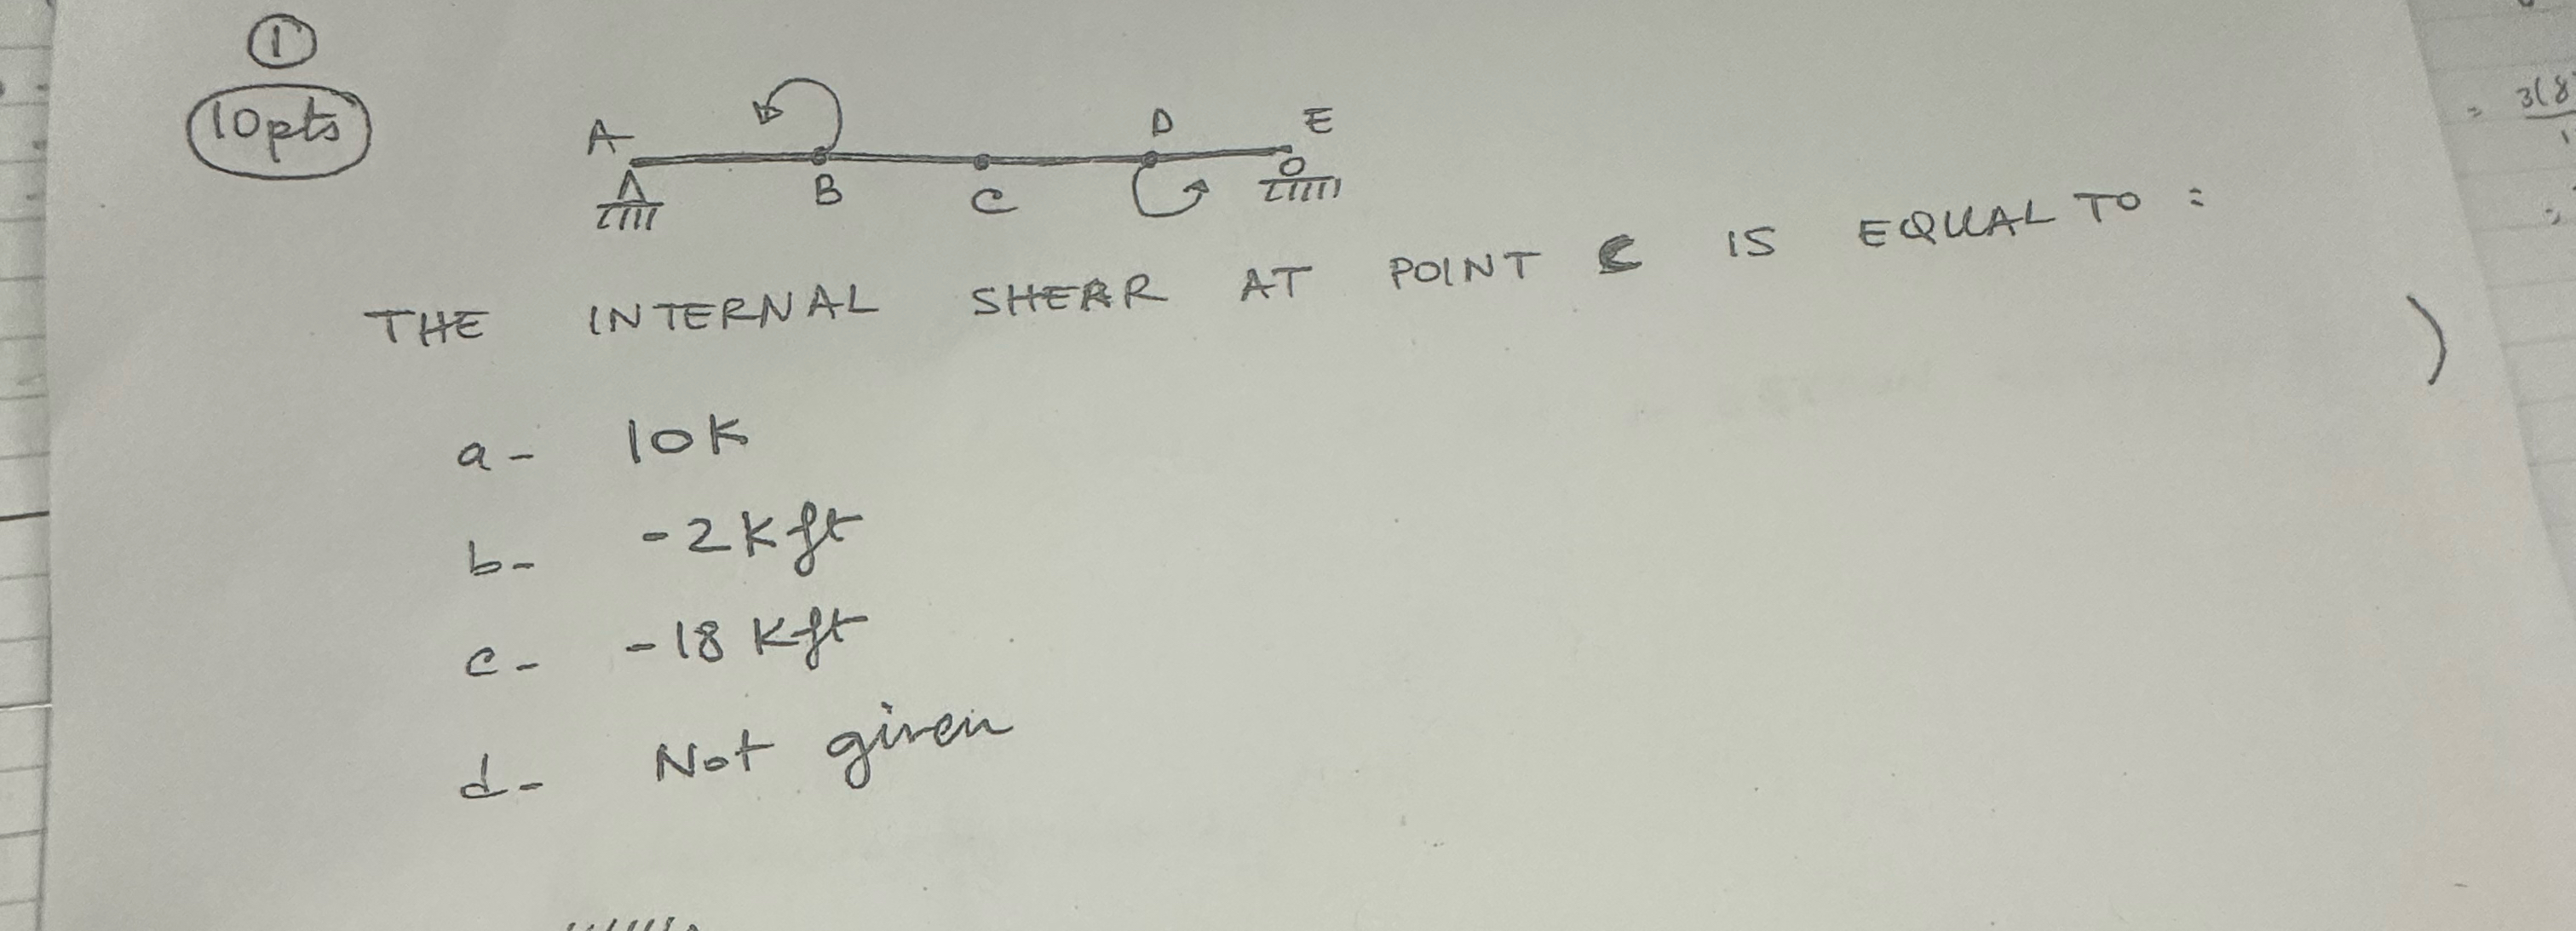 1
10pts
A B C D E
THE INTERNAL SHEAR AT POINT C IS EQUAL TO :
a- 10K
b- -2K ft
c- -18 Kft
d- Not given
= 3(8